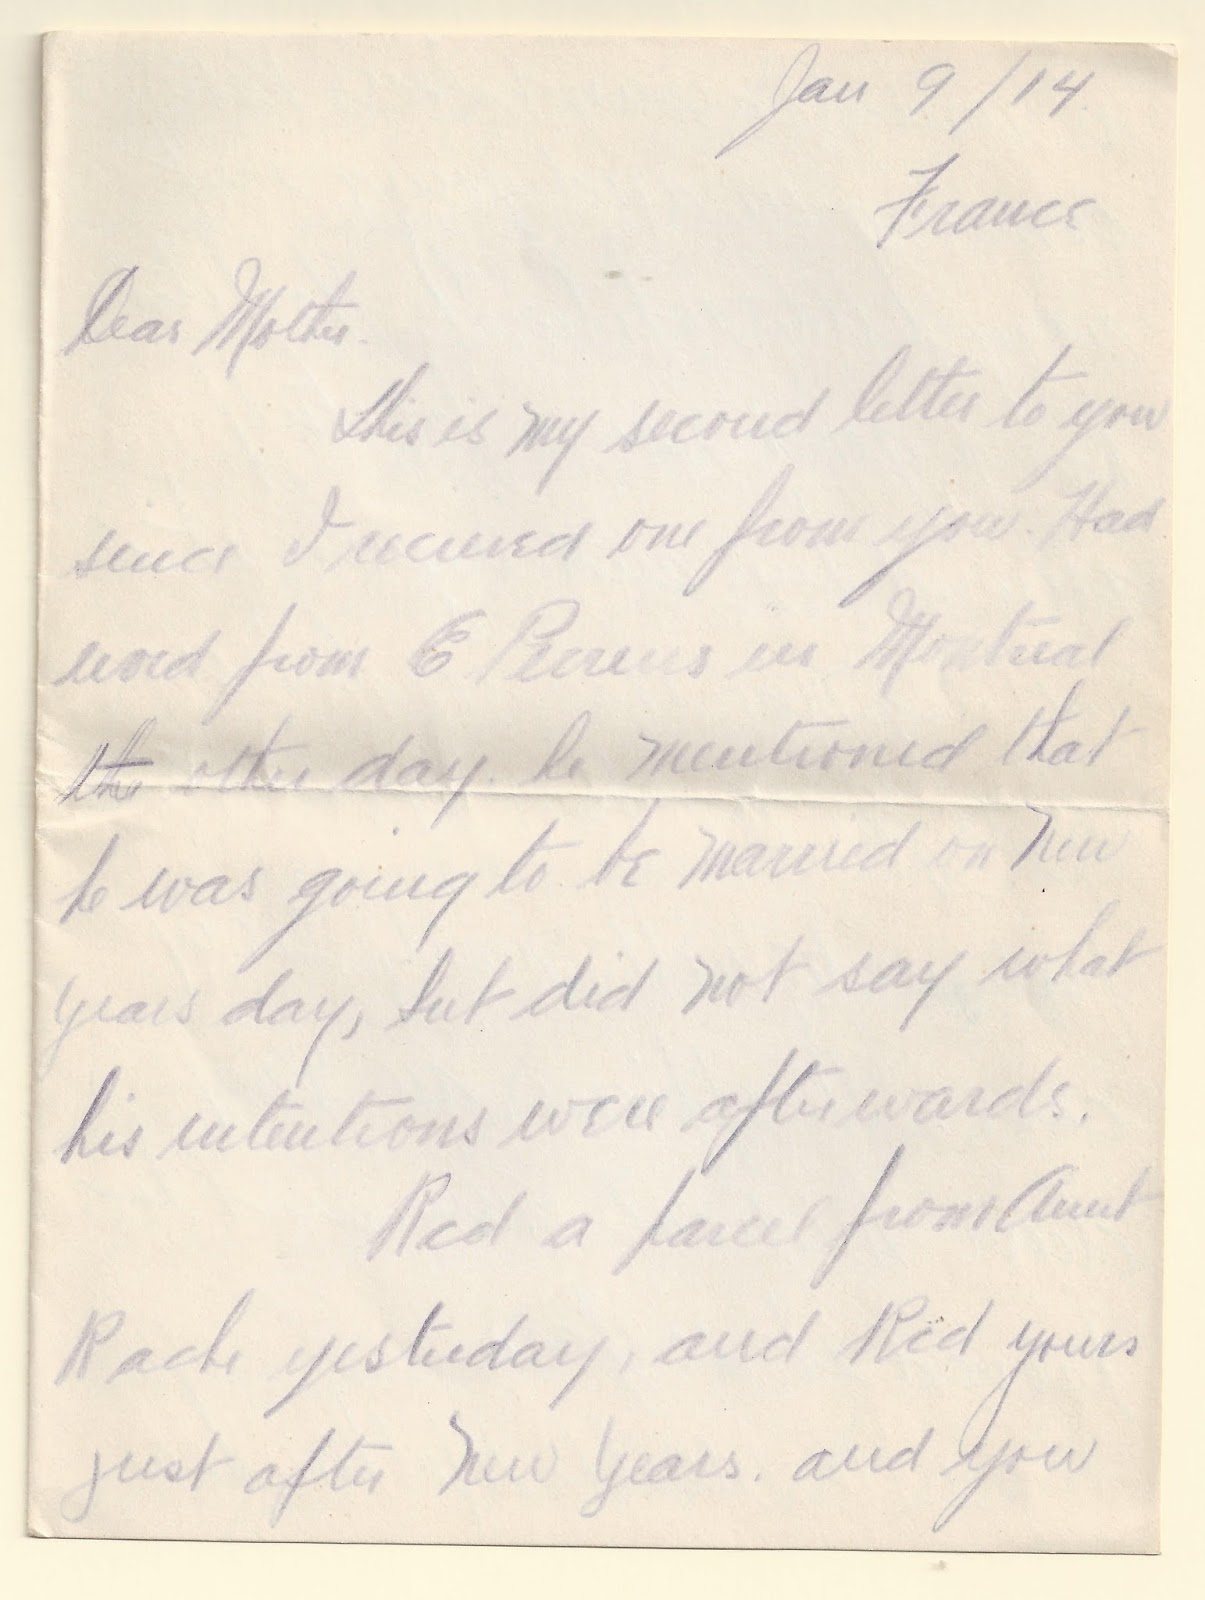 Jan 9/14
France
Dear Mother.
This is my second letter to you
since I received one from you. Had
word from E in Montreal
the other day. he mentioned that
he was going to be married on New
Years day, but did not say what
his intentions were afterwards.
Rcd a parcel from Aunt
Rach yesterday, and Rcd yours
just after New Years. and you